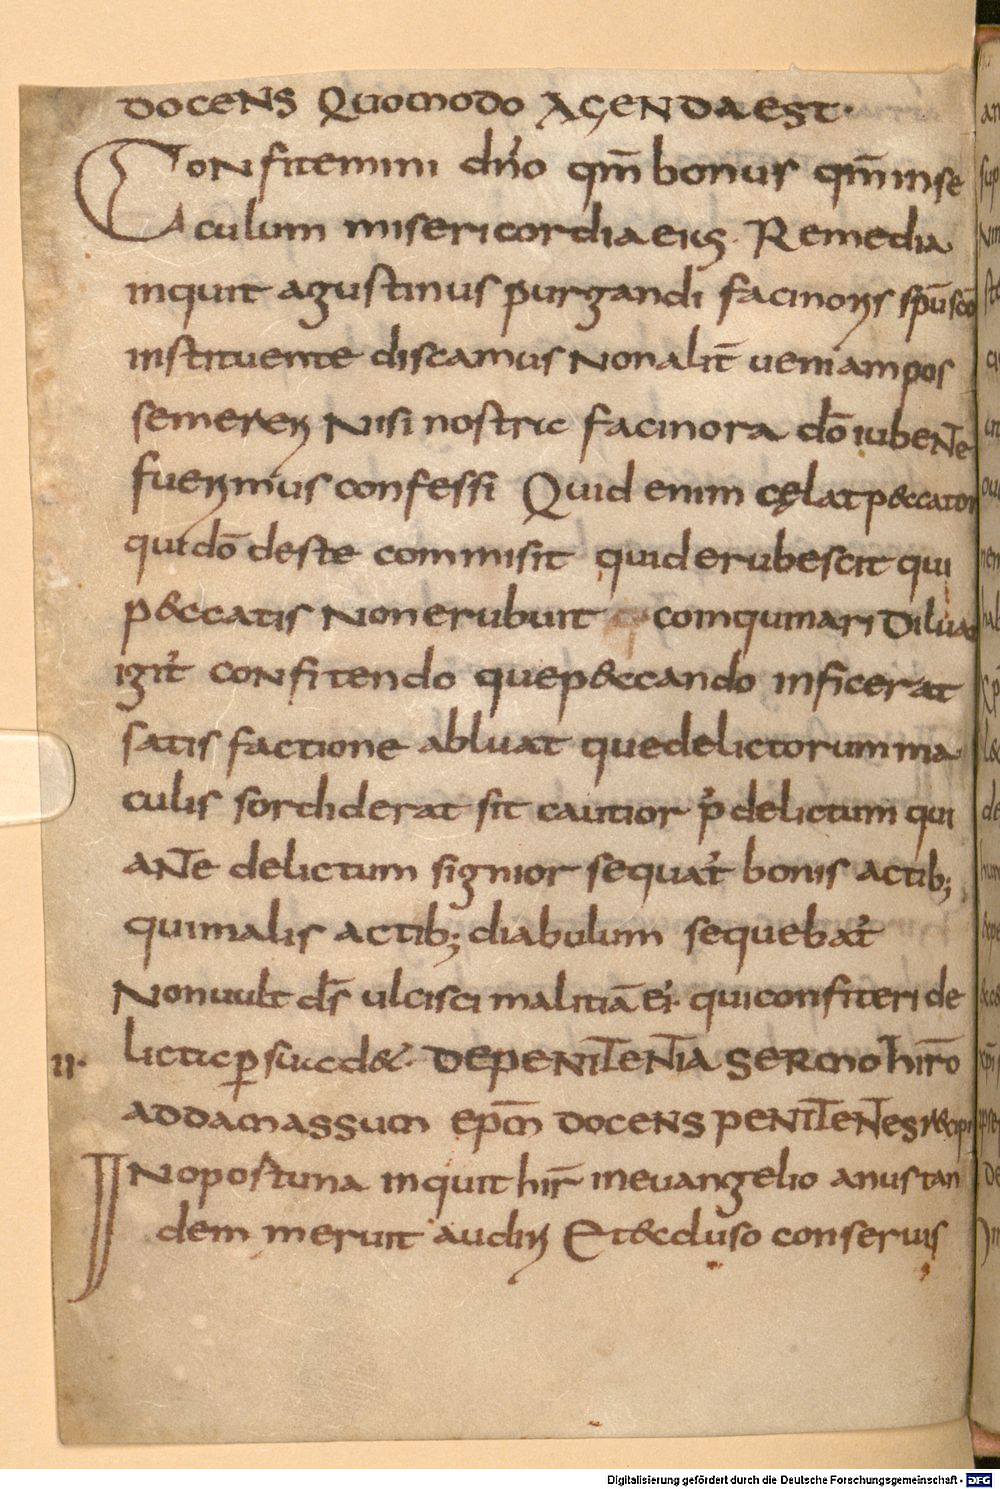 DOCENS QUOMODO AGENDA EST·
CoNfitemini dn̄o qm̄ bonus qm̄ inse
culum misericordia eius· Remedia
inquit agustinus purgandi facinoris sp̄u sc̄o
instituente discamus Non alit̄ ueniam pos
semereri Nisi nostric facinora dō iubeNte
fuerimus confessi Quid enim cęlat p&ccator
qui dō deste commisit quid erubescit qui
p&ccatis Non erubuit coinquinari Diluat
igit̄ coNfitendo que p&ccando inficerat
satis factione abluat que delictorum ma
culis sordiderat sit cautior p̄ delictum qui
aNte delictum signior sequat̄ bonis actib;
qui malis actib; diabulum sequebat̄
Non uult ds̄ ulcisci malitiā ei· qui confiteri de
II· lictic p suicc d&· DE PENITENTIA SERMO hIRO
AD DAMASSUM EPM̄ DOCENS PENITENTES
IN oportuna inquit hir̄ in euangelio anus tan
dem meruit audiri Et &cduso conseruis
Digitalisierung gefördert durch die Deutsche Forschungsgemeinschaft - DFG